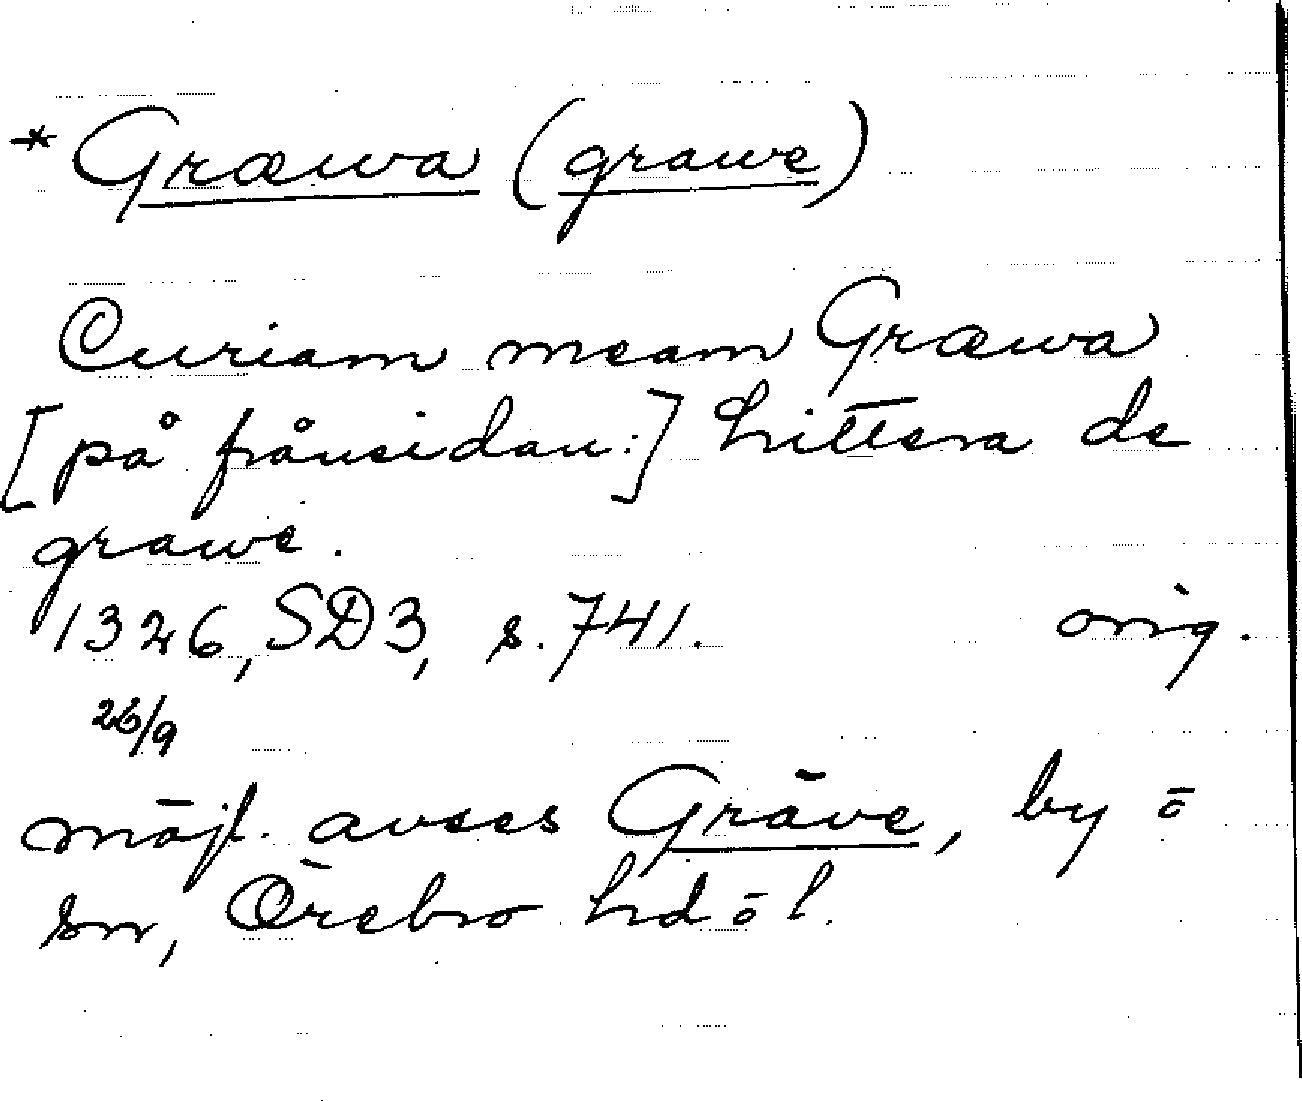 * Græwa (grawe)
Curiam meam Græwa
[på frånsidan:] Littera de
grawe.
1326, SD3, s. 741. orig.
26/9
möjl. avses Gräve, by o
sn, Örebro hd o l.